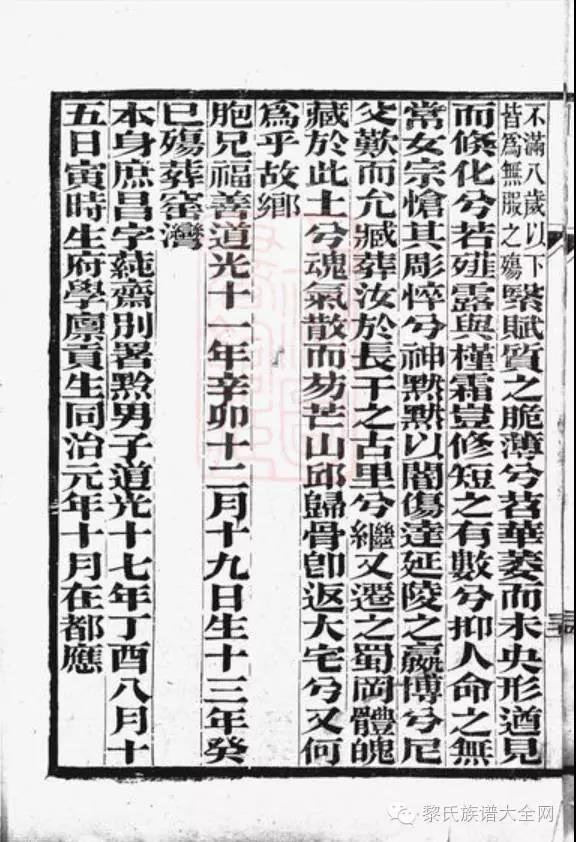 不滿八歲以下
皆爲無服之殤緊賦質之脆薄兮苕華萎而未央形遒見
而倏化兮若薤露與槿霜豈修短之有數兮抑人命之無
常女宗愴其彫悴兮神黙黙以闇傷達延陵之嬴博兮尼
父歎而允臧葬汝於長干之古里兮繼又遷之蜀岡體魄
藏於此土兮魂氣散而坊芒山邱歸骨卽返大宅兮又何
爲乎故鄉
胞兄福善道光十一年辛卯十二月十九日生十三年癸
巳殤葬窑灣
本身庶昌字蒓齋別署黔男子道光十七年丁酉八月十
五日寅時生府學廪貢生同治元年十月在都應
黎氏族谱大全网